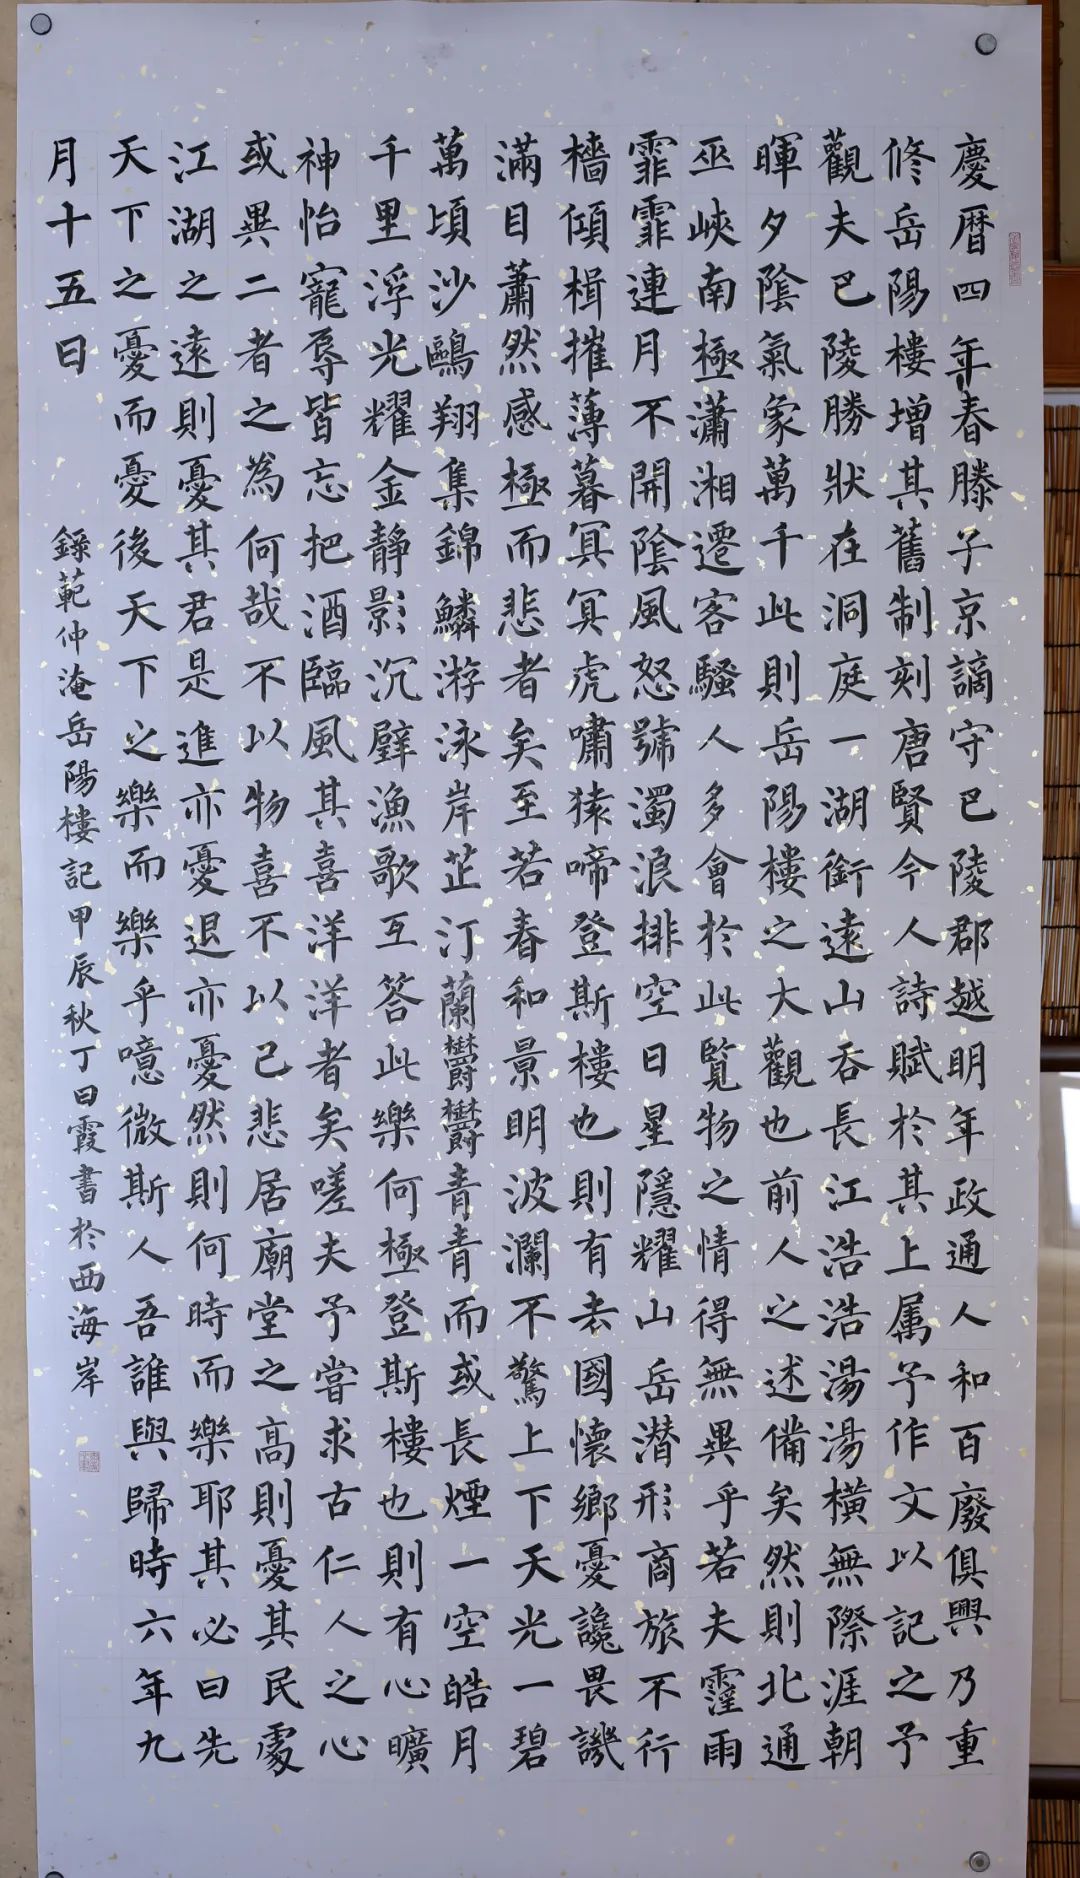 慶暦四年春滕子京謫守巴陵郡越明年政通人和百廢俱興乃重
修岳陽樓增其舊制刻唐賢今人詩賦於其上属予作文以記之予
觀夫巴陵勝狀在洞庭一湖銜遠山吞長江浩浩湯湯橫無際涯朝
暉夕陰氣象萬千此則岳陽樓之大觀也前人之述備矣然則北通
巫峽南極瀟湘遷客騷人多會於此覽物之情得無異乎若夫霪雨
霏霏連月不開陰風怒號濁浪排空日星隱耀山岳潛形商旅不行
檣傾楫摧薄暮冥冥虎嘯猿啼登斯樓也則有去國懷鄉憂讒畏譏
滿目蕭然感極而悲者矣至若春和景明波瀾不驚上下天光一碧
萬頃沙鷗翔集錦鱗游泳岸芷汀蘭欝欝青青而或長煙一空皓月
千里浮光耀金靜影沉璧漁歌互答此樂何極登斯樓也則有心曠
神怡寵辱皆忘把酒臨風其喜洋洋者矣嗟夫予嘗求古仁人之心
或異二者之為何哉不以物喜不以己悲居廟堂之高則憂其民處
江湖之遠則憂其君是進亦憂退亦憂然則何時而樂耶其必曰先
天下之憂而憂後天下之樂而樂乎噫微斯人吾誰與歸時六年九
月十五日
錄範仲淹岳陽樓記甲辰秋丁曰霞書於西海岸